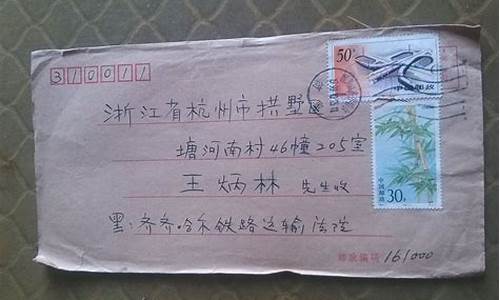 310011
50分
中国邮政
浙江省杭州市拱墅区
塘河南村46幢205室
王炳林 先生收
黑:齐齐哈尔铁路运输法院
中国邮政
30分
邮政编码 161000